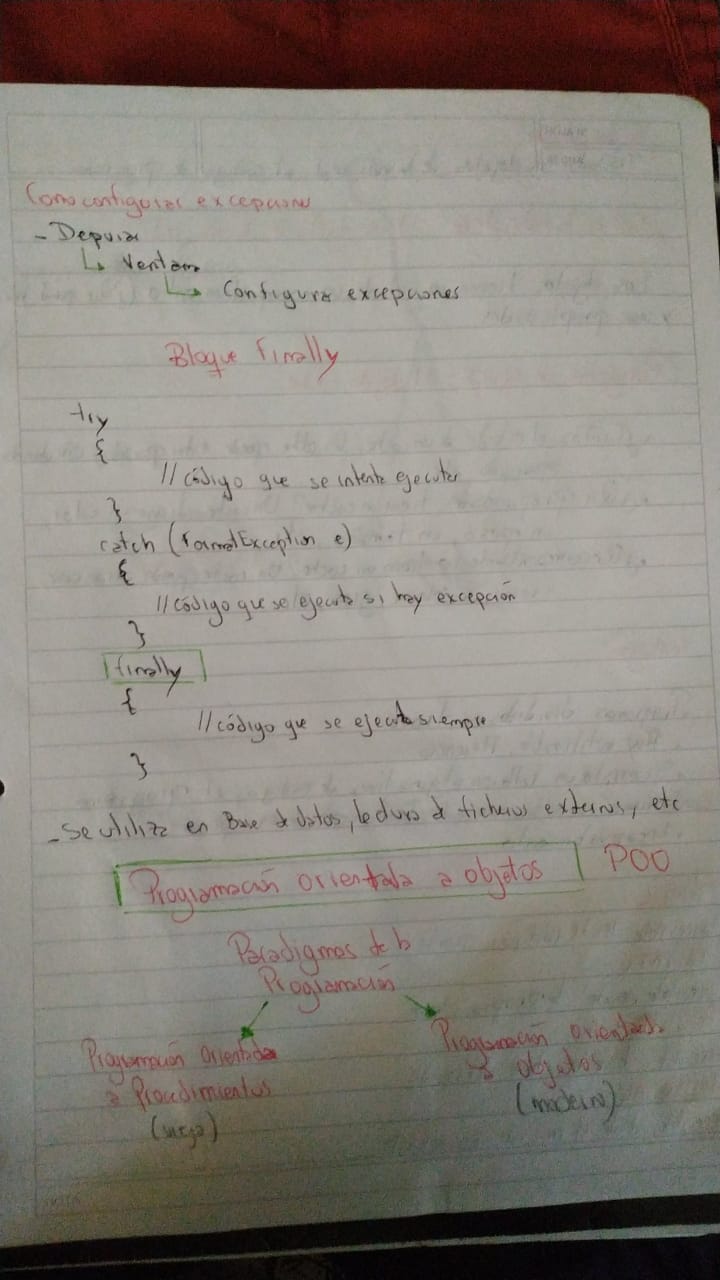 Como configurar excepciones
- Depurar
↳ Ventana
↳ Configurar excepciones
Bloque Finally
try
{
// código que se intenta ejecutar
}
catch (FormatException e)
{
// código que se ejecuta si hay excepción
}
finally
{
// código que se ejecuta siempre
}
- Se utiliza en Base de datos, lectura de ficheros externos, etc
Programación orientada a objetos POO
Paradigmas de la
Programación
Programación Orientada
a Procedimientos
(vieja)
Programación orientada
a objetos
(moderno)